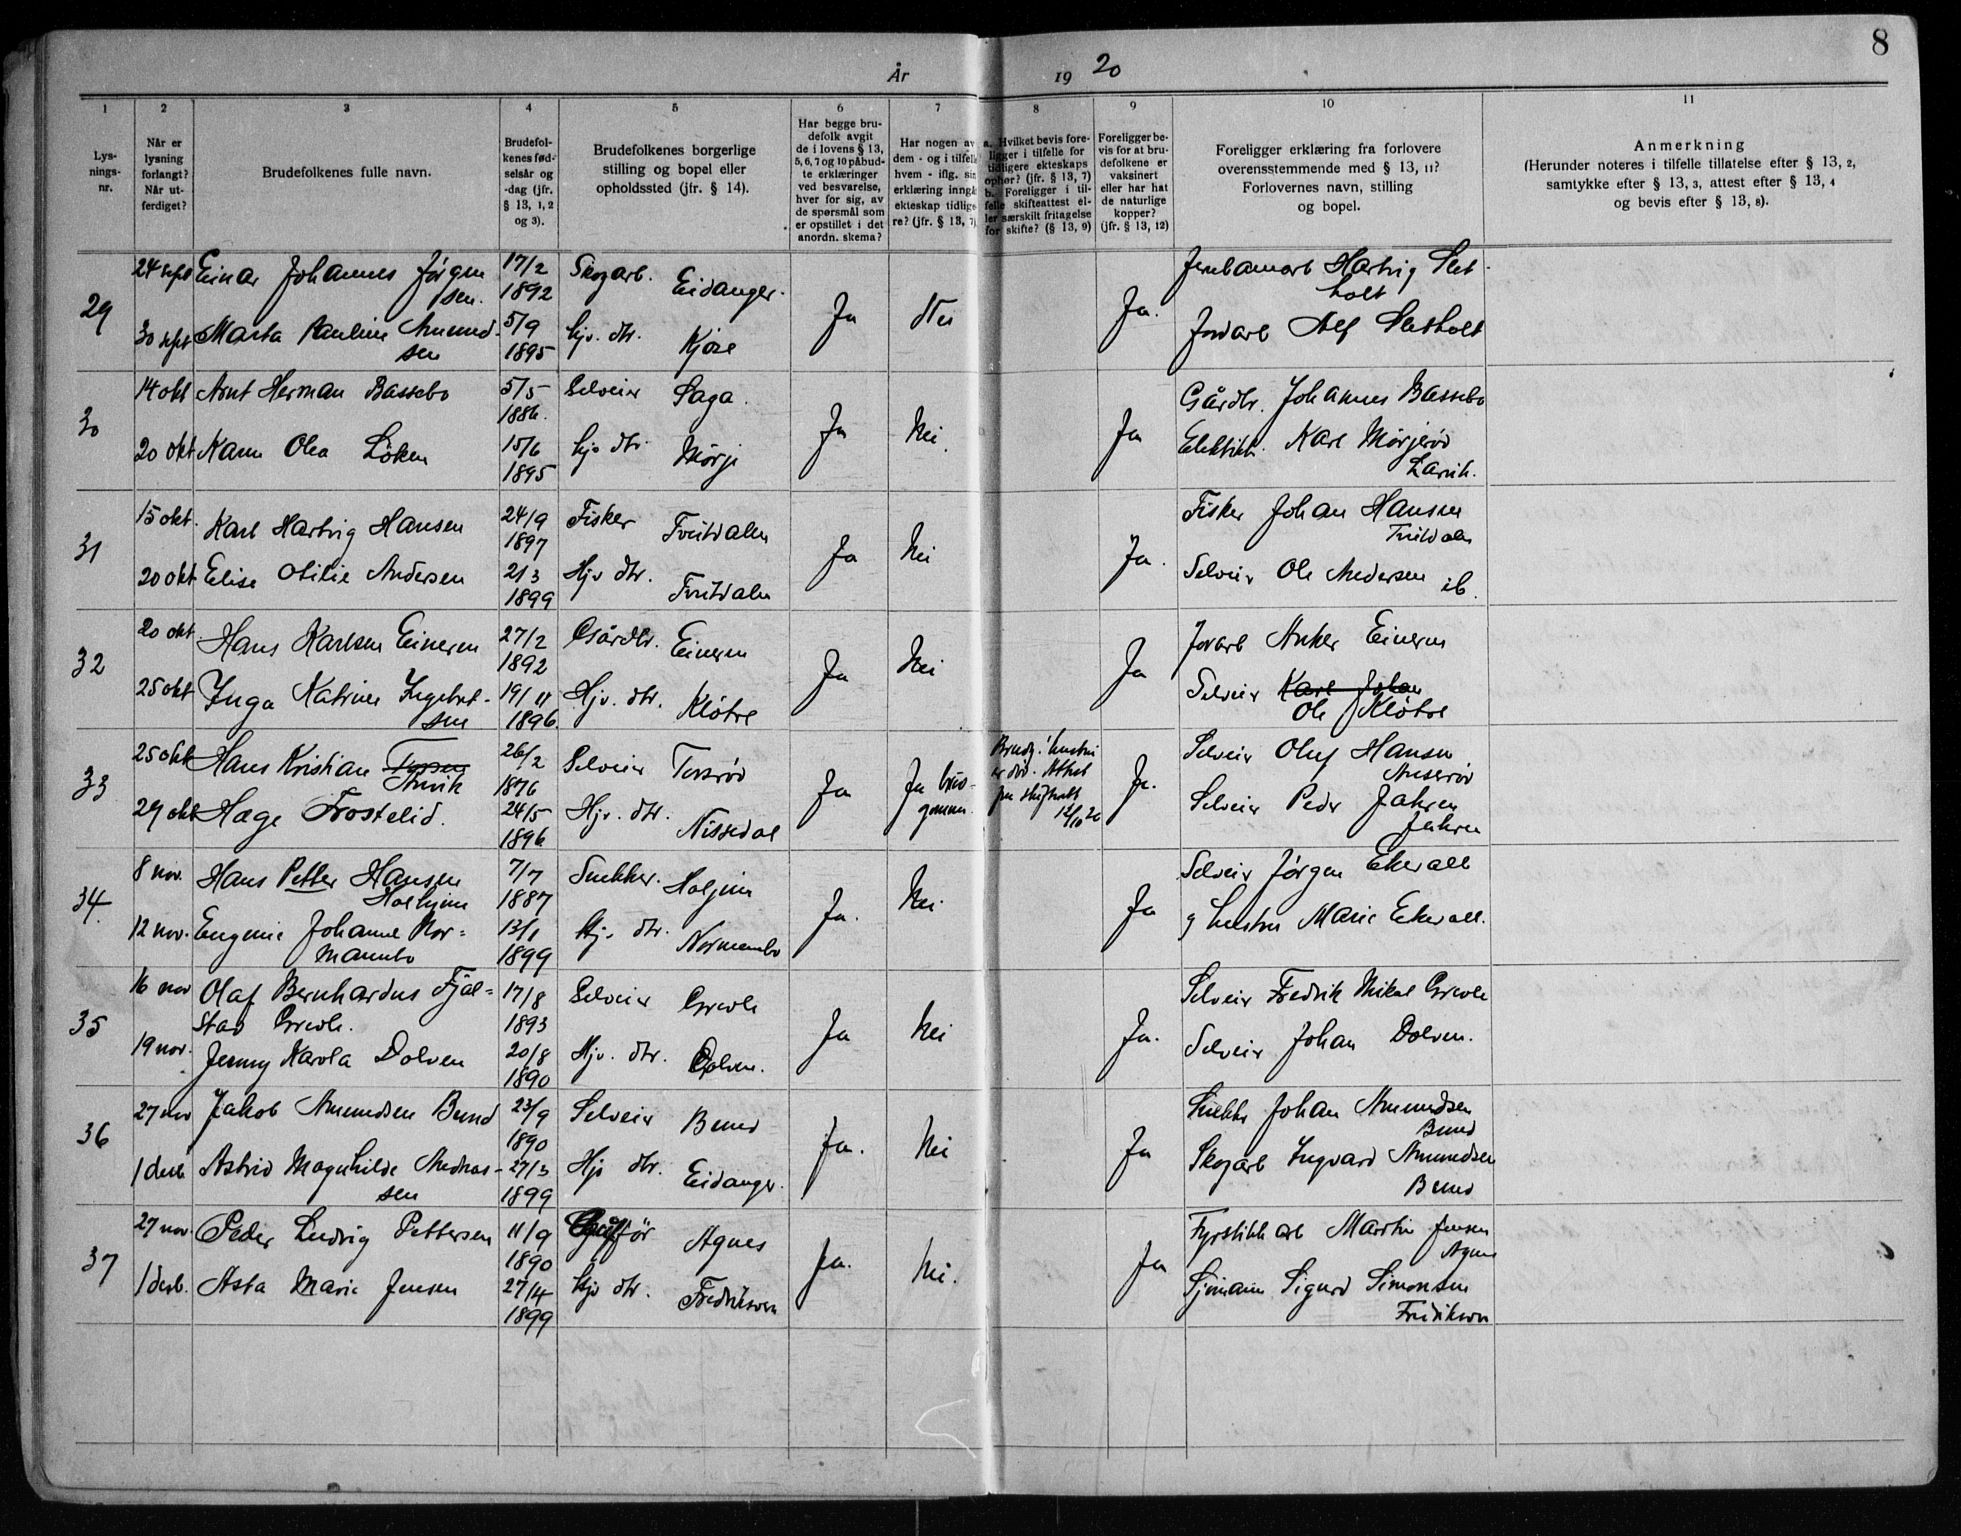 8
År 1920
1 2 3 4 5 6 7 8 9 10 11
Lys-
nings-
nr.
Når er
lysning
forlangt?
Når ut-
ferdiget?
Brudefolkenes fulle navn.
Brudefol-
kenes fød-
selsår og
-dag (jfr.
§ 13, 1, 2
og 3).
Brudefolkenes borgerlige
stilling og bopel eller
opholdssted (jfr. § 14).
Har begge bru-
defolk avgit
de i lovens § 13,
5, 6, 7 og 10 påbud-
te erklæringer
ved besvarelse,
hver for sig, av
de spørsmål som
er opstillet i det
anordn. skema?
Har nogen av
dem - og i tilfelle
hvem - iflg. sin
erklæring inngåt
ekteskap tidlige-
re? (jfr. § 13, 7)
a. Hvilket bevis fore-
ligger i tilfelle for
tidligere ekteskaps
ophør? (jfr. § 13, 7)
b. Foreligger i til-
felle skifteattest el-
ler særskilt fritagelse
for skifte? (§ 13, 9)
Foreligger be-
vis for at bru-
defolkene er
vaksinert
eller har hat
de naturlige
kopper?
(jfr. § 13, 12)
Foreligger erklæring fra forlovere
overensstemmende med § 13, 11?
Forlovernes navn, stilling
og bopel.
Anmerkning
(Herunder noteres i tilfelle tillatelse efter § 13, 2,
samtykke efter § 13, 3, attest efter § 13, 4
og bevis efter § 13, 8).
29
24 sept Einar Johannes Jørgen
sen. 17/2 1892 Skogarb. Eidanger.
30 sept Marta Pauline Amund-
sen 5/9 1895 hjv. dtr. Kjose
Ja Nei Ja.
Hartvig Slet
holt
Jordarb Alf Sletholt
30
14 okt Arnt Herman Bassebo 5/5 1886. Selveier Saga.
20 okt Olea Løken 15/6 1895 hjv dtr. Mørje
Ja Nei Ja
Gårdbr. Johannes Bassebo
Elektrik. Karl Mørjerød
Larvik.
31
15 okt. Karl Hartvig Hansen 24/9 1897 Fisker Tveitdalen
20 okt Elise Otilie Andersen 21/3 1899 Hjv dtr. Tveitdalen
Ja Nei Ja.
Fisker Johan Hansen
Tveitdalen
Selveier Ole Andersen ib.
32
20 okt. Hans Karlsen Eineren 27/2 1892 Gårdbr. Eineren
25 okt Inga Katrine Ingebret-
sen 19/11 1896. Hjv. dtr. Kløtre
Ja Nei Ja
Jorarb Anker Eineren
Selveier Karl Johan
Ole Kløtre
33
25 okt Hans Kristian
26/2 1876 Selveier Torsrød
29 okt Hæge Frostelid. 24/5 1896 Hjv. dtr. Nissedal
Ja Ja brud-
gommen
Brudg. hustru
er død. Attest
fra skifterett
12/10 20
Ja.
Selveier Oluf Hansen
Anserød
Selveier Peder Jahren
Jahren
34.
8 nov. Hans Petter Hansen
Holhjem 7/7 1887 Snekker. Holjem
12 nov. Eugenie Johanne Nor=
mannbo 13/1 1899 Hjv. dtr. Normannbo
Ja. Nei. Ja
Selveier Jørgen Ekevall
og hustru Marie Ekevall.
35
16 nov Olaf Bernhardus Fjæl=
stad Grevle. 17/8 1893 Selveier Grevle
19 nov. Jenny Karola Dolven 20/8 1890 Hjv. dtr. Dolven.
Ja Nei Ja.
Selveier Fredrik Mikal Grevle
Selveier Johan Dolven.
36
27 nov Jakob Amundsen Bund 23/9 1890 Selveier Bund
1 desb Astrid Magnhilde Andreas-
sen 27/3 1899 Hjv dtr. Eidanger.
Ja. Nei Ja
Snekker Johan Amundsen
Bund
Skogarb Ingvard Amundsen
Bund
37
27 nov. Peder Ludvig Pettersen 11/9 1890 Agnes
1 desb. Asta Marie Jensen 27/4 1899 hjv dtr. Fredriksvern
Ja. Nei. Ja
Fyrstikk arb Martin Jensen
Agnes
Sjømann Sigurd Simonsen
Fredriksvern